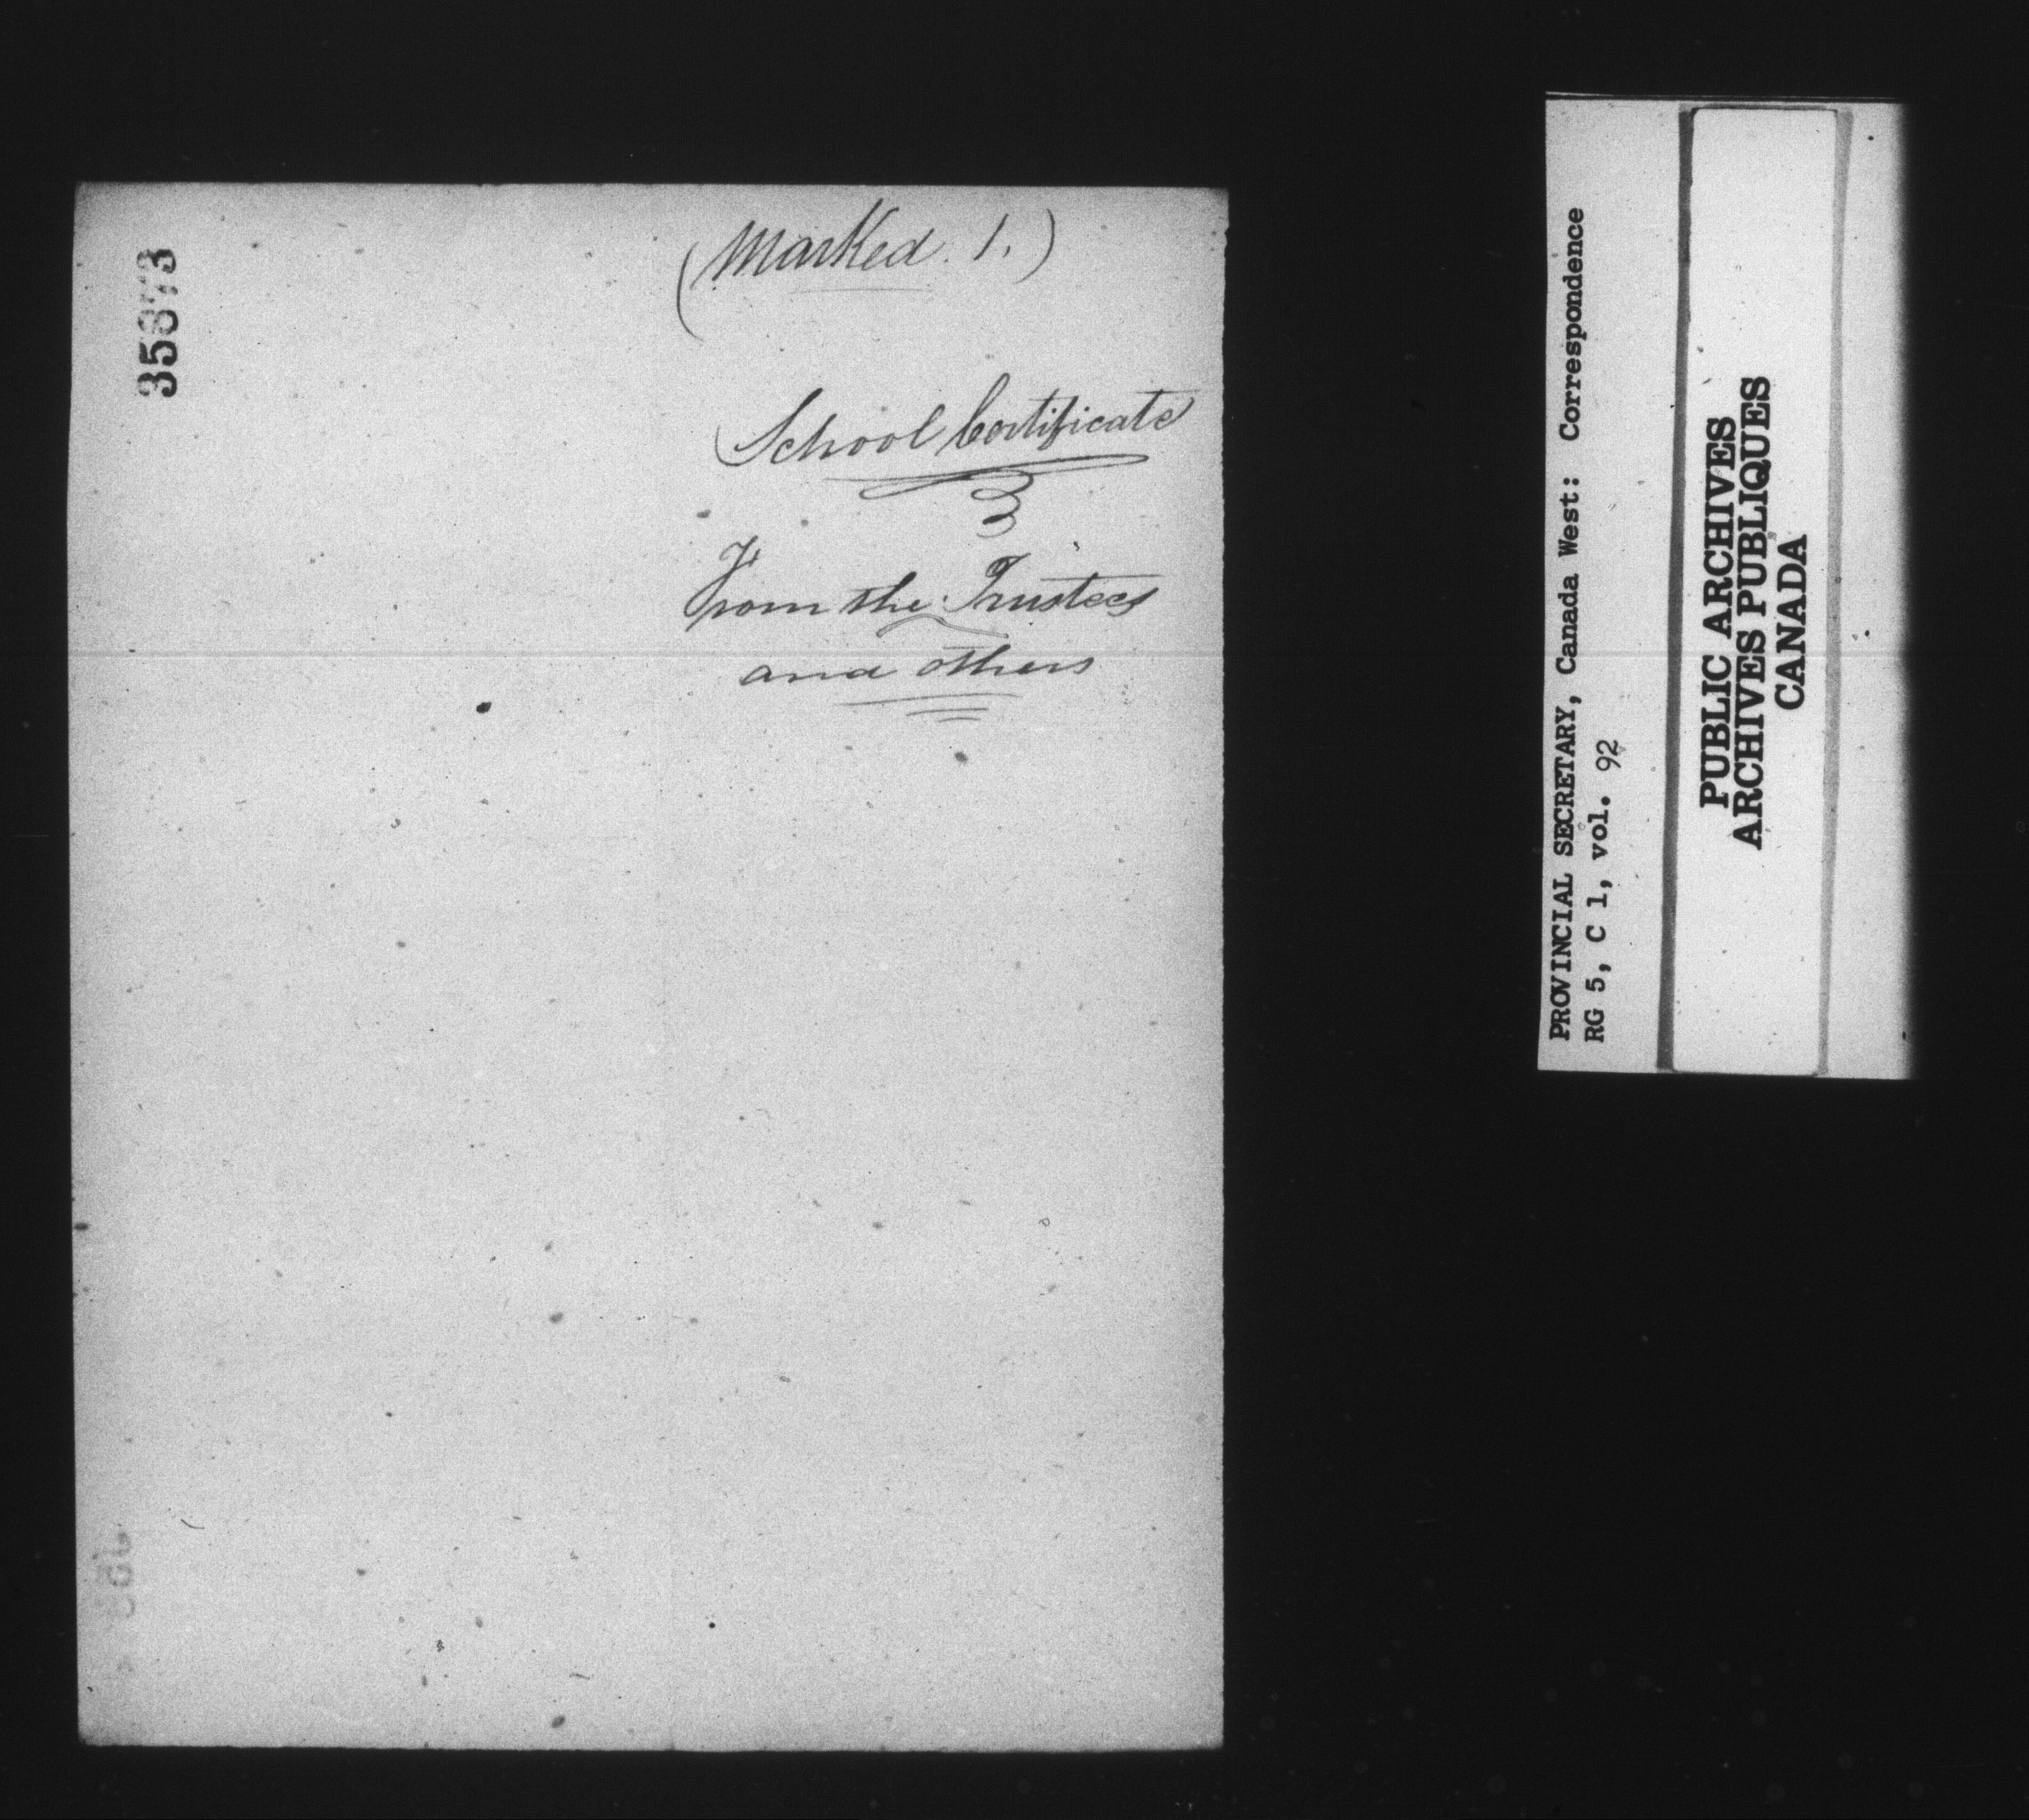 35873
(Marked. 1.)
School Certificate
From the Trustees
and others
PROVINCIAL SECRETARY, Canada West: Correspondence
RG 5, C 1, vol. 92
PUBLIC ARCHIVES
ARCHIVES PUBLIQUES
CANADA